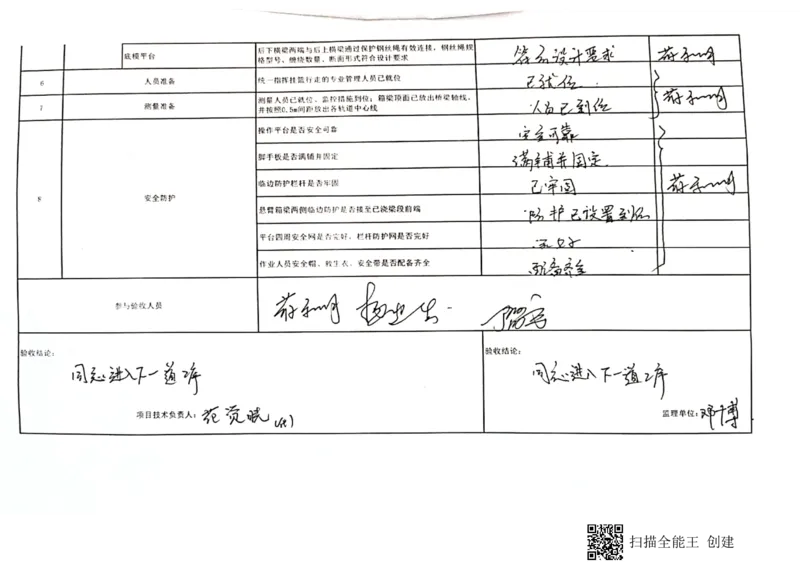 底模平台
后下横梁两端与后上横梁通过保护钢丝绳有效连接，钢丝绳规
格型号、缠绕数量、断面形式符合设计要求
符合设计要求
6
人员准备
统一指挥挂篮行走的专业管理人员已就位
已就位
7
测量准备
测量人员已就位、监控措施到位；箱梁顶面已放出桥梁轴线，
并按照0.5m间距放出各轨道中心线
人员已到位
8
安全防护
操作平台是否安全可靠
安全可靠
脚手板是否满铺并固定
满铺并固定
临边防护栏杆是否牢固
已牢固
悬臂箱梁两侧临边防护是否接至已浇梁段前端
防护已设置到位
平台四周安全网是否完好、栏杆防护网是否完好
完好
作业人员安全帽、救生衣、安全带是否配备齐全
配备齐全
参与验收人员
验收结论：
同意进入下一道工序
项目技术负责人：
验收结论：
同意进入下一道工序
监理单位：
扫描全能王 创建